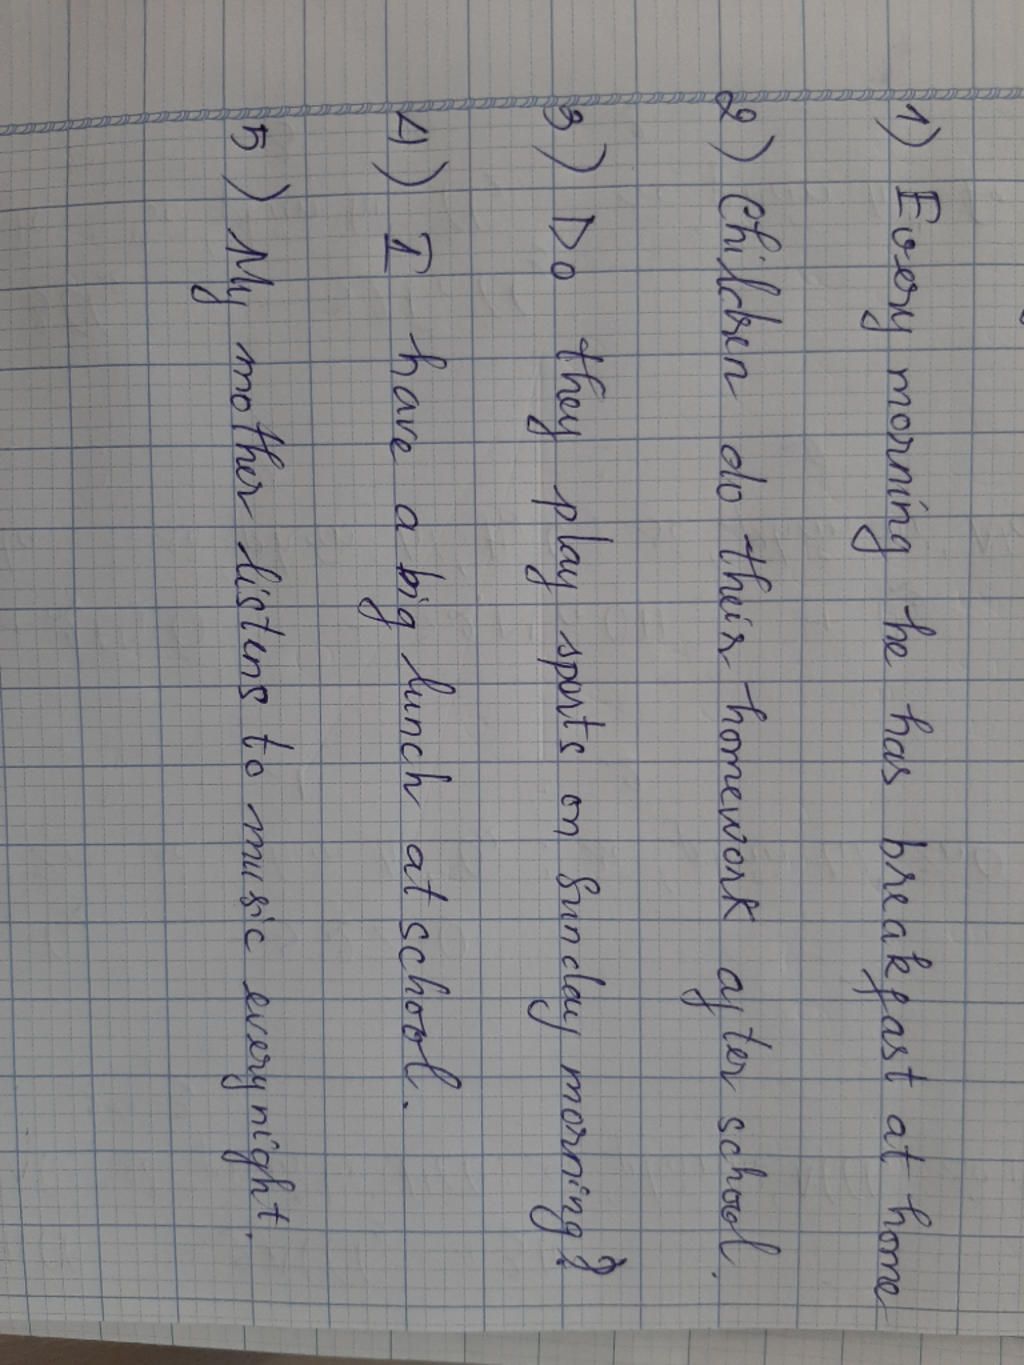 1) Every morning he has breakfast at home
2) Children do their homework after school.
3) Do they play sports on Sunday morning?
4) I have a big lunch at school.
5) My mother listens to music every night.